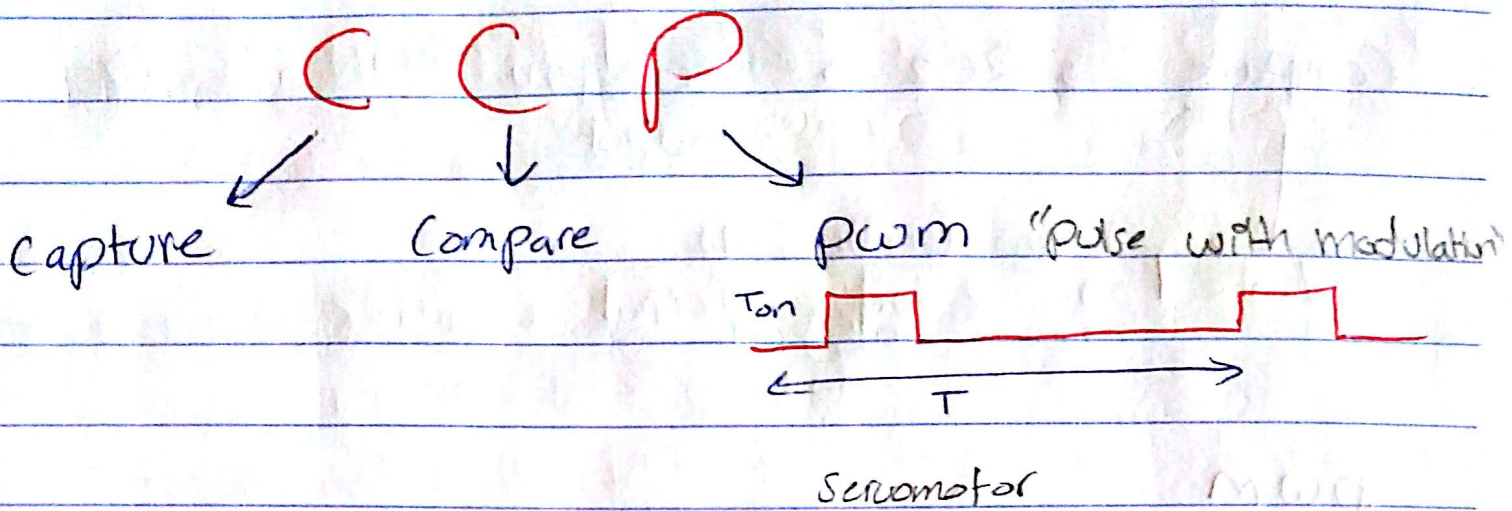 C C P
Capture Compare pwm "pulse with modulation"
Ton
T
Servomotor